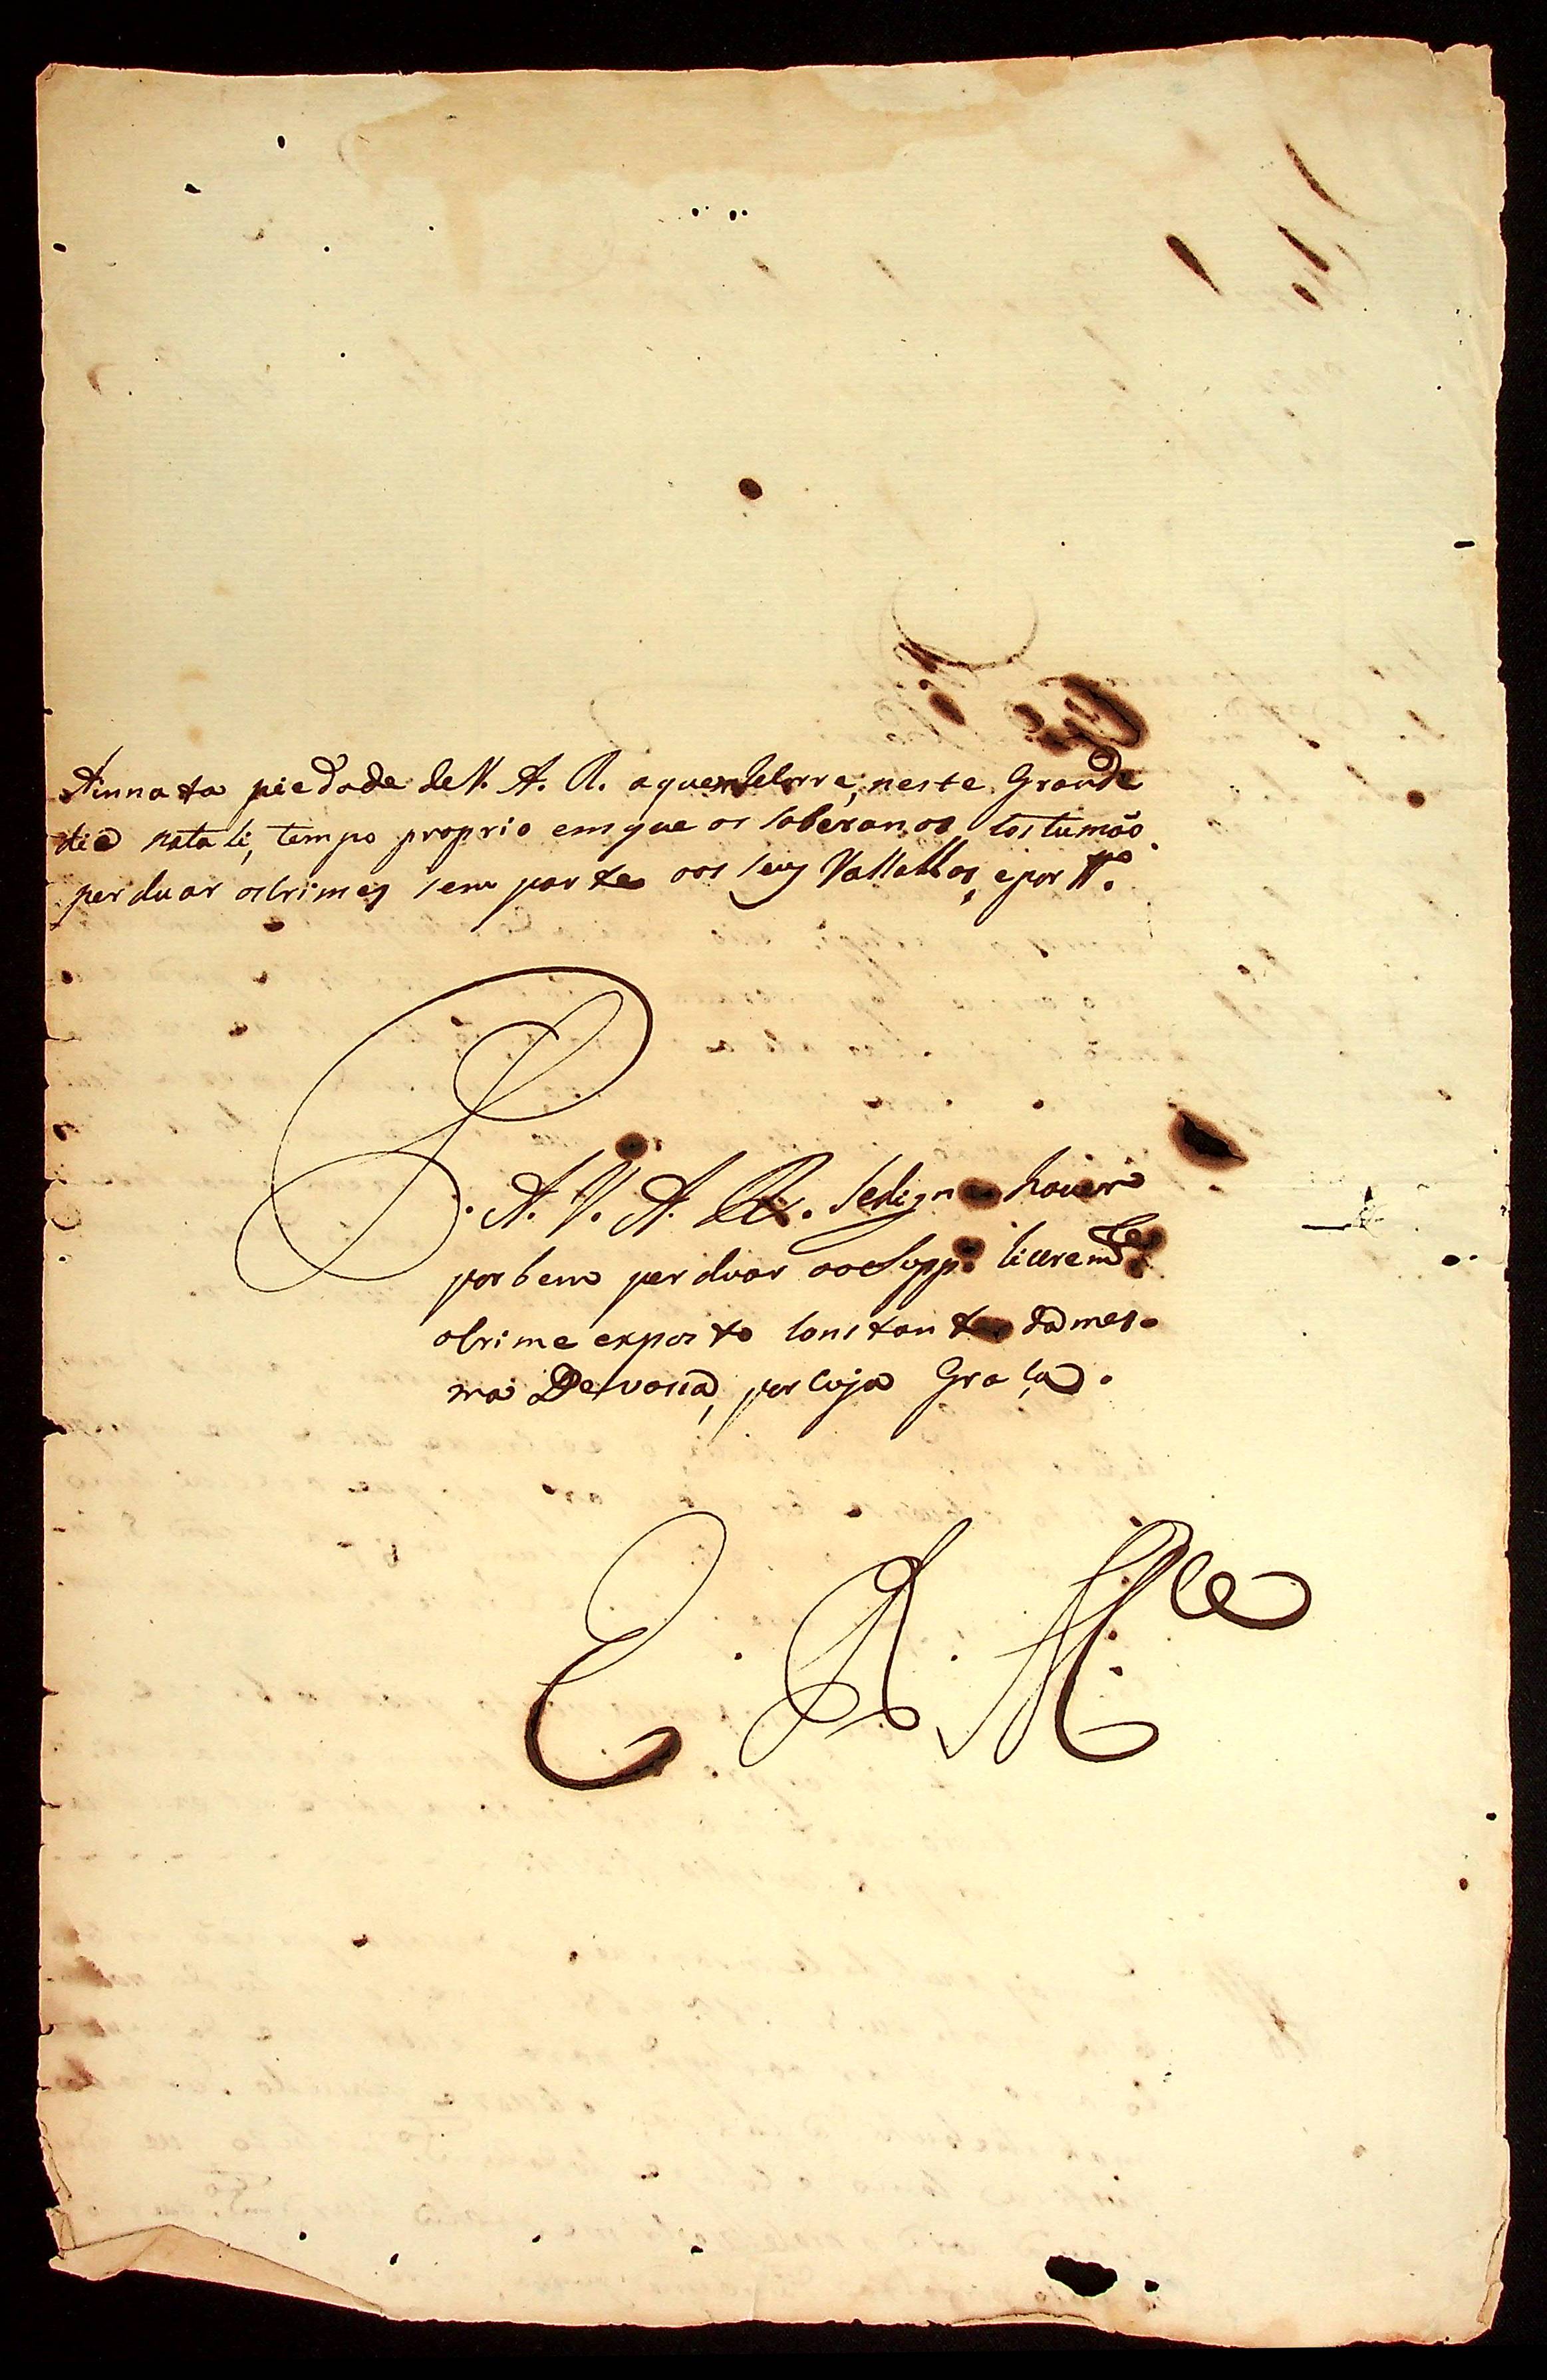 Ainnata piedade de V. A. R. aquem Reccorre, neste Grande
dia natali, tempo proprio emque os soberanos, costumão
perduar oscrimes sem parte aos seus Vassallos, epor tt.º
P. A. V. A. R. sedigne hauer
porbem perduar aoSupp.e liurem.te
ocrime exposto constante dames-
ma Devaça, porcuja Graça.
E. R. M.ce